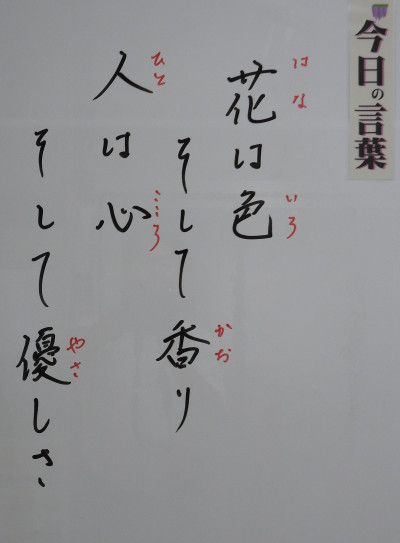 今日の言葉
花は色
はな
いろ
そして香り
かお
人は心
ひと
こころ
そして優しさ
やさ